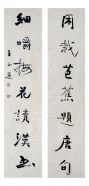 閒哉芭蕉題唐句
細嚼梅花讀漢書